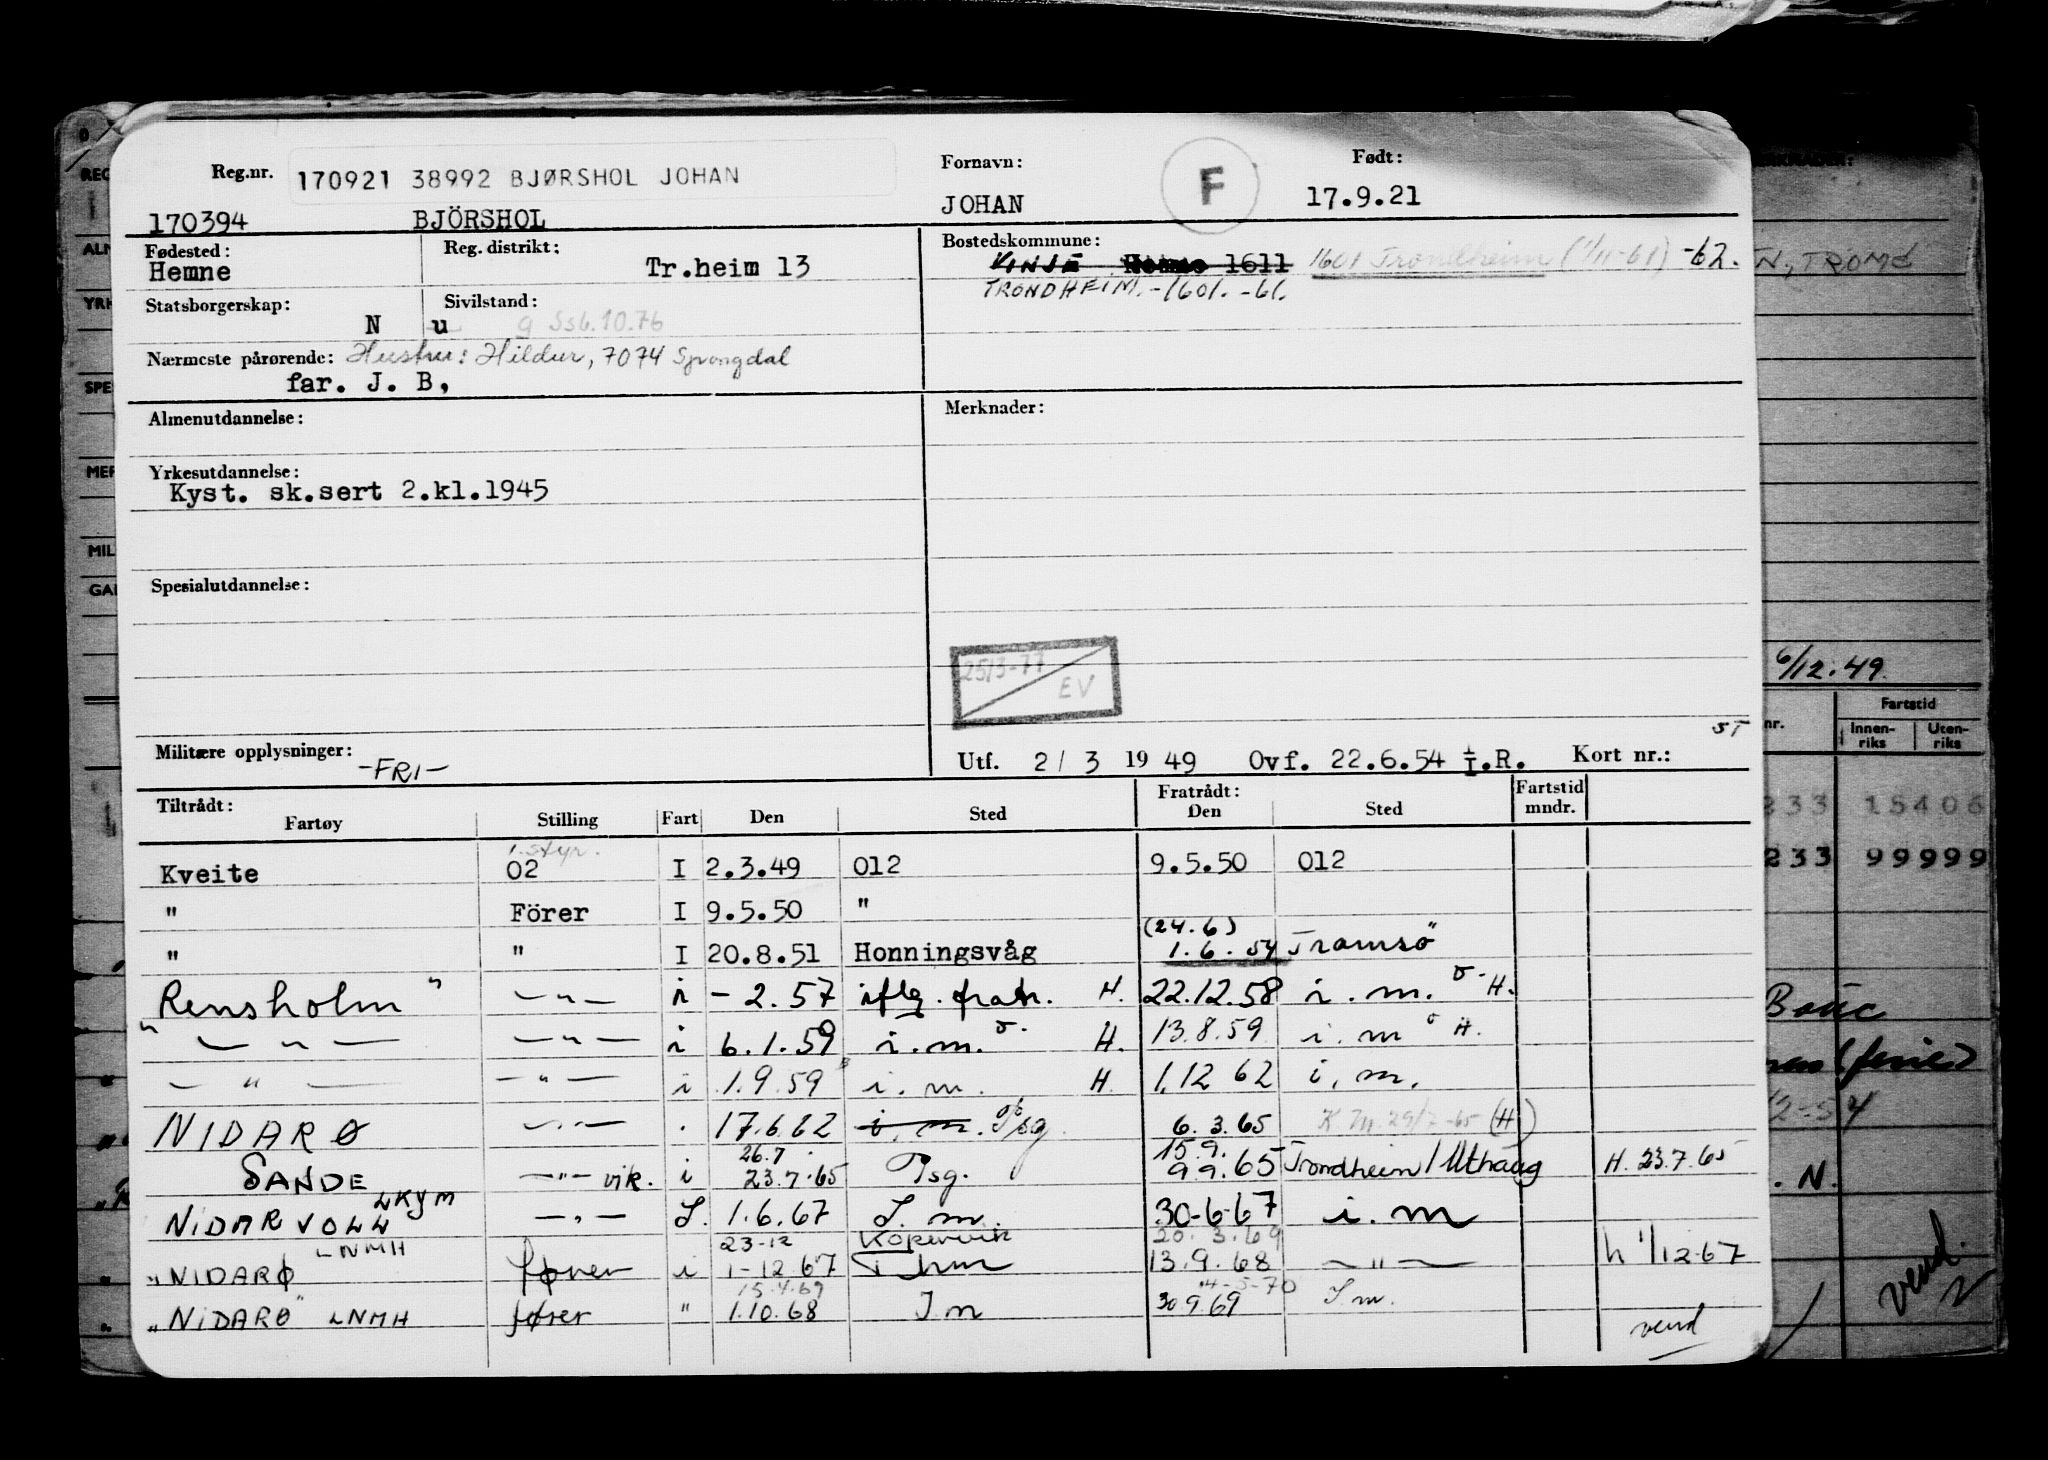 Reg.nr. 170921 38992 BJØRSHOL JOHAN Fornavn: F Født:
170394 BJÖRSHOL JOHAN 17.9.21
Fødested: Reg. distrikt: Bostedskommune:
Hemne Tr.heim 13 VINJE Hemne 1611 1601 Trondheim (1/11-61) -62.
TRONDHEIM. -1601. -61.
Statsborgerskap: Sivilstand:
N u g Ss6.10.76
Nærmeste pårørende: Hustru: Hildur, 7074 Spongdal
far. J. B,
Almenutdannelse: Merknader:
Yrkesutdannelse:
Kyst. sk.sert 2.kl.1945
Spesialutdannelse:
25/3-77
EV
6/12.49
ST
Militære opplysninger: -FRI- Utf. 2 / 3 19 49 Ovf. 22.6.54 I.R. Kort nr.:
Tiltrådt: Fratrådt: Fartstid
Fartøy Stilling Fart Den Sted Den Sted mndr.
1. styr.
Kveite 02 I 2.3.49 012 9.5.50 012
" Förer I 9.5.50 "
(24.6)
" " I 20.8.51 Honningsvåg 1.6.54 Tromsö
"Rensholm" — " — i - 2.57 iflg. fratr. H. 22.12.58 i.m. H.
— " — — " — i 6.1.59 i.m. H. 13.8.59 i.m H.
— " — — " — i 1.9.59 i.m. H 1.12 62 i.m.
NIDARØ — " — . 17.6.62 i.m. Psg. 6.3.65 K M. 29/7-65 (H)
26.7 15.9.
SANDE — " — vik. i 23.7.65 Psg. 9.9.65 Trondheim/Uthaug H. 23.7.65
LKYM
NIDARVOLL — " — I. 1.6.67 I.m. 30-6-67 i.m
LNMH 23-12 Kopervik 20.3.69
"NIDARØ fører i 1-12 67 13.9.68 — " — h 1/12-67
15.4.69 4-5-70
"NIDARØ" LNMH fører " 1.10.68 I.m 30 9.69 I.m.
vend
REG
ALM
YRK
SPE
MER
MIL
GAR
N, TROMS
nr. Fartstid
Innen-riks Uten-riks
233 15406
233 99999
(ferie)
12-54
. N.
vend